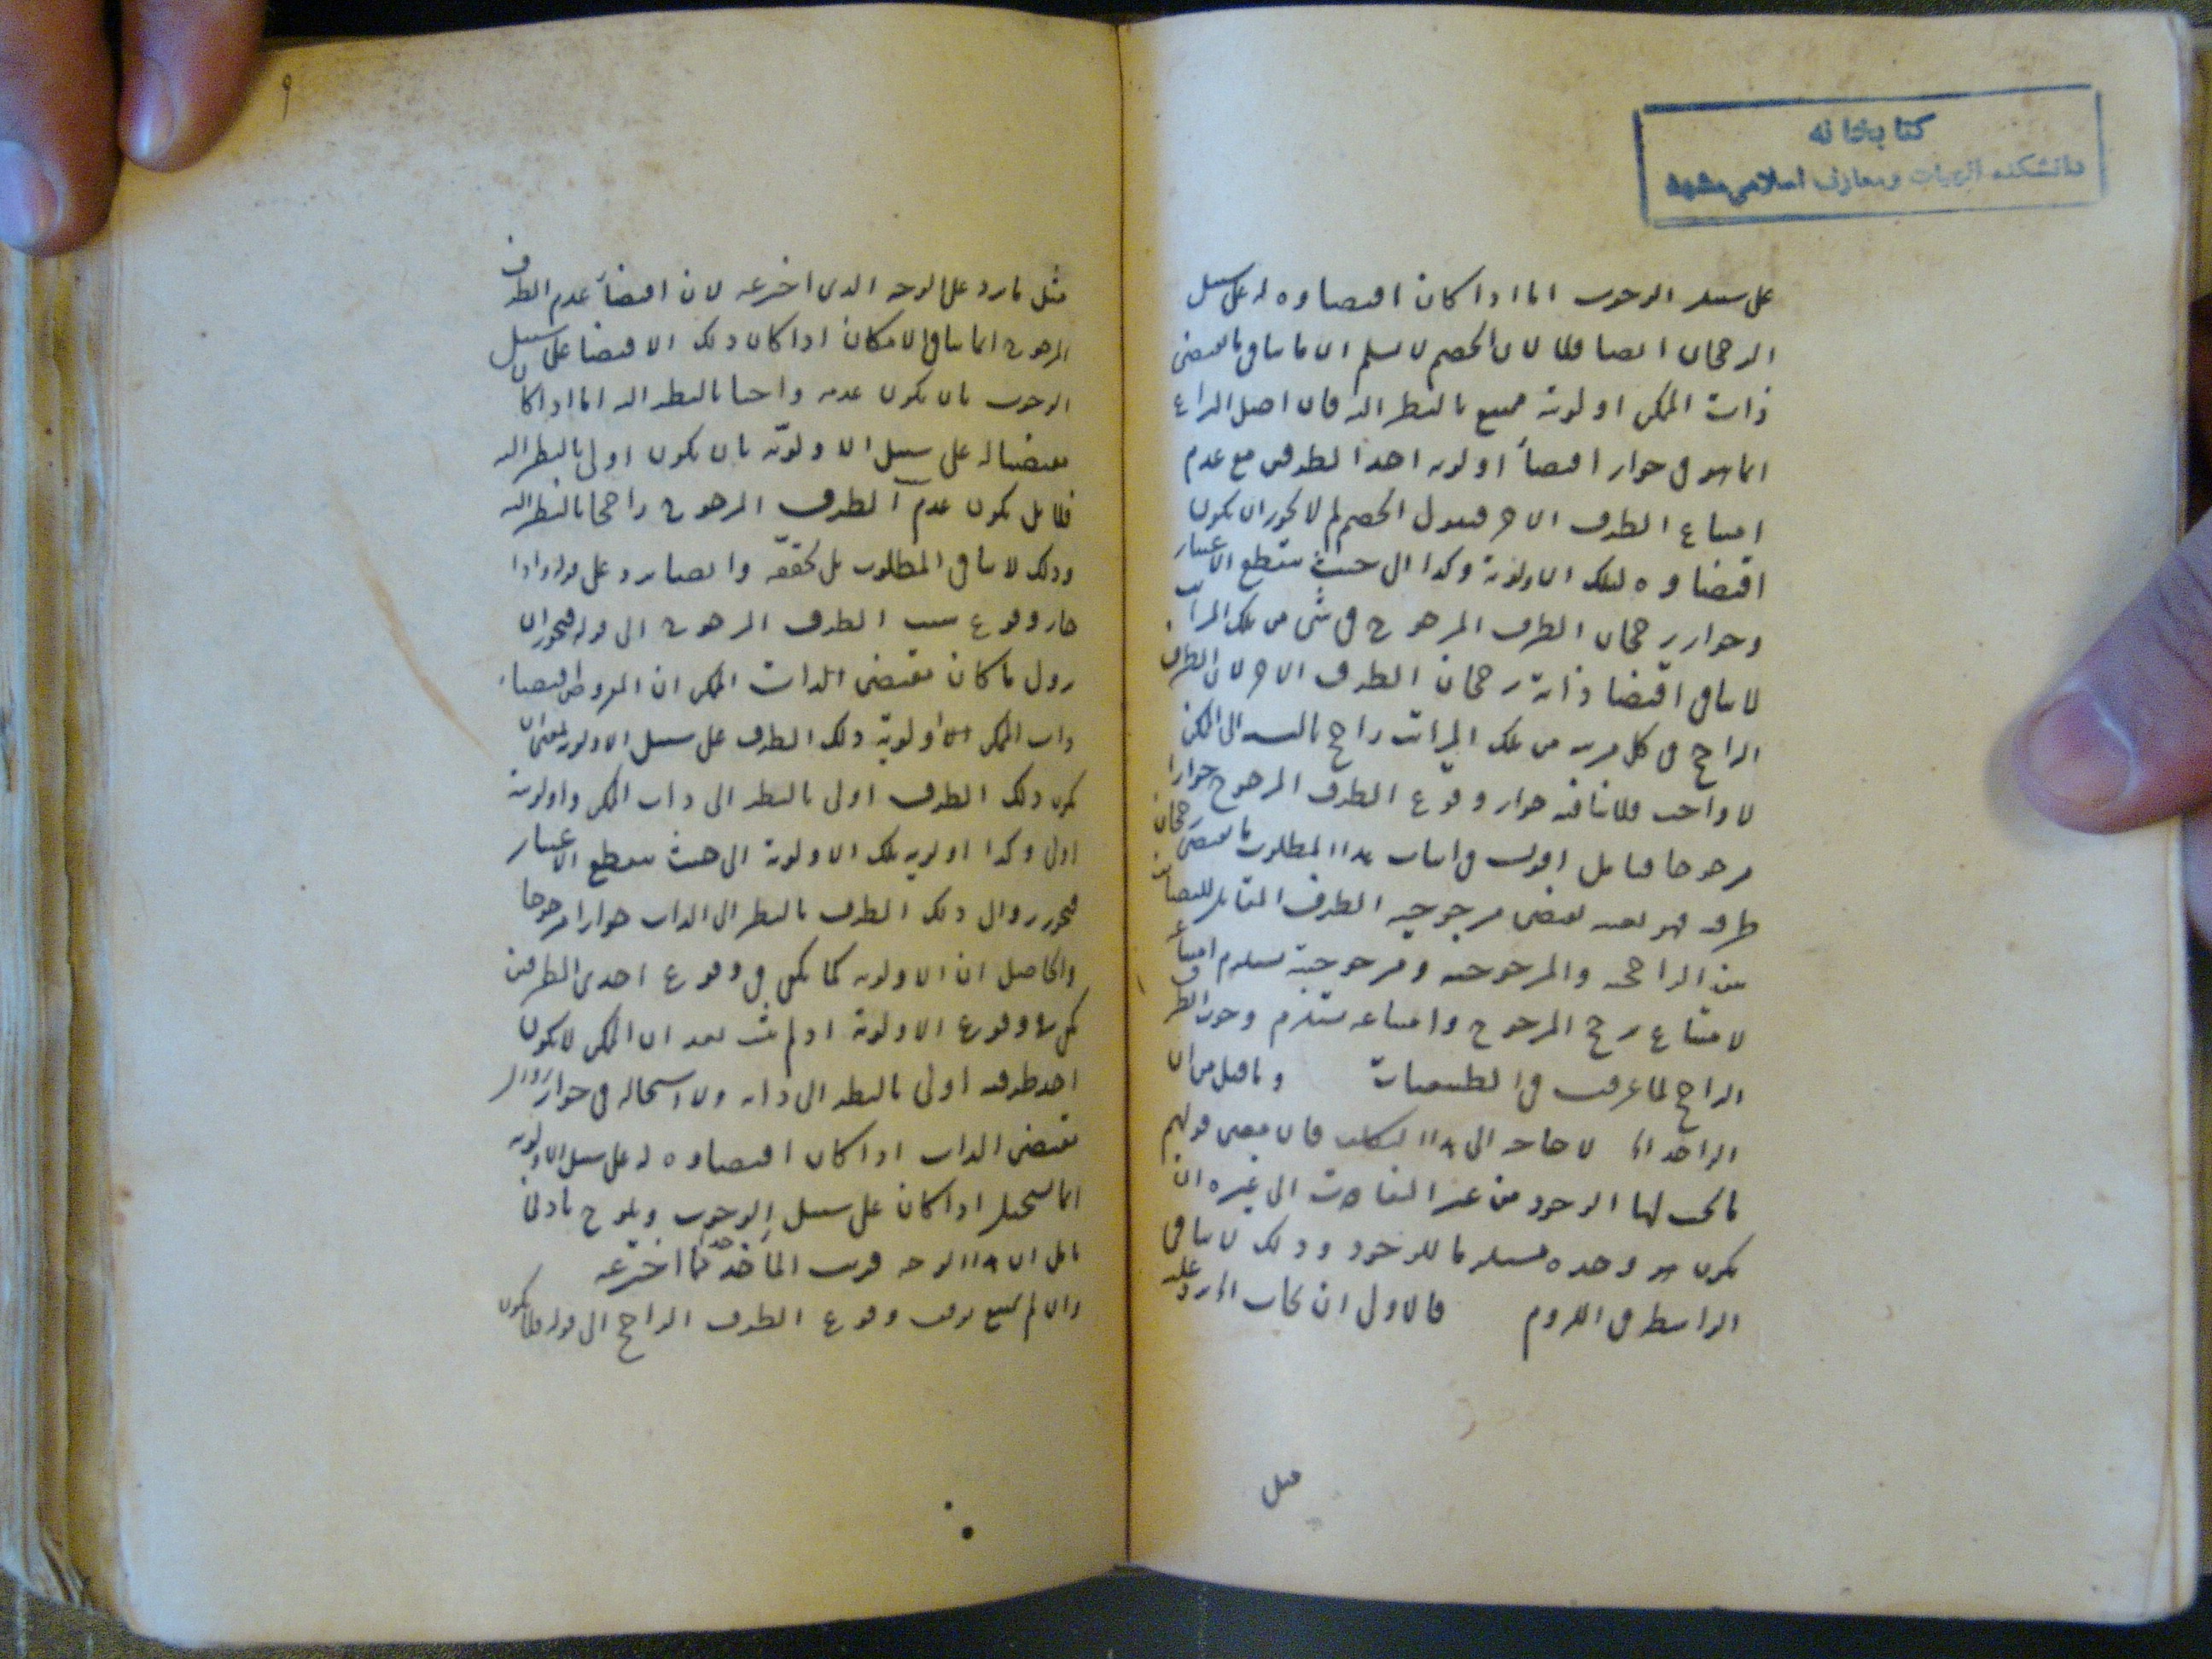 كتابخانه
دانشكده الهيات ومعارف اسلامى مشهد
على سبيل الوجوب اما اذا كان اقتضاوه له على سبيل
الرجحان ايضا فلا لان الخصم لا يسلم ان ما ينافى ما يقتضى
ذات الممكن اولويته ممتنع بالنظر اليه فان اصل النزاع
انما هو فى جواز اقتضاء اولوية احد الطرفين مع عدم
امتناع الطرف الاخر فيقول الخصم لم لا يجوز ان يكون
اقتضاوه لتلك الاولوية وكذا الى حيث ينقطع الاعتبار
وجواز رجحان الطرف المرجوح فى شئ من تلك المراتب
لا ينافى اقتضا ذاته رجحان الطرف الاخر لان الطرف
الراجح فى كل مرتبة من تلك المراتب راجح بالنسبة الى الممكن
لا واجب فلا ينافيه جواز وقوع الطرف المرجوح جوازا
مرجوحا فتامل اقول فى اثبات هذا المطلوب ما يقتضى رجحان
طرف فهو بعينه يقتضى مرجوحية الطرف المقابل للتضايف
بين الراجحية والمرجوحية ومرجوحيته يستلزم امتناعه
لامتناع ترجح المرجوح وامتناعه يستلزم وجوب الطرف
الراجح لما عرفت فى الطبيعيات وما قيل من ان
لا حاجة الى هذا التكلف فان معنى قولهم
ما يجب لها الوجود من غير التفات الى غيره ان
يكون هو وحده مستلزما للوجود وذلك لا ينافى
الواسطة فى اللزوم فالاولى ان يجاب
قيل
٩
مثل ما يرد على الوجه الذى اخترعه لان اقتضاء عدم الطرف
المرجوح انما ينافى الامكان اذا كان ذلك الاقتضا على سبيل
الوجوب بان يكون عدمه واجبا بالنظر اليه اما اذا كان
مقتضيا له على سبيل الاولوية بان يكون اولى بالنظر اليه
فلا بل يكون عدم الطرف المرجوح راجحا بالنظر اليه
وذلك لا ينافى المطلوب بل يحققه وايضا يرد على قوله واذا
جاز وقوع سبب الطرف المرجوح الى قوله فيجوز ان
يزول ما كان مقتضى لذات الممكن ان المفروض اقتضاء
ذات الممكن اولوية ذلك الطرف على سبيل الاولوية بمعنى ان
يكون ذلك الطرف اولى بالنظر الى ذات الممكن واولويته
اولى وكذا اولوية تلك الاولوية الى حيث ينقطع الاعتبار
فيجوز زوال ذلك الطرف بالنظر الى الذات جوازا مرجوحا
والحاصل ان الاولوية كما يكفى فى وقوع احدى الطرفين
يكفى فى وقوع الاولوية اذ لم يثبت بعد ان الممكن لا يكون
احد طرفيه اولى بالنظر الى ذاته ولا استحالة فى جواز زوال
مقتضى الذات اذا كان اقتضاوه له على سبيل الاولوية
انما يستحيل اذا كان على سبيل الوجوب ويلوح بادنى
تامل ان هذا الوجه قريب المأخذ جدا مما اخترعه
وان لم يمتنع لوقف وقوع الطرف الراجح الى قوله فلا يكون